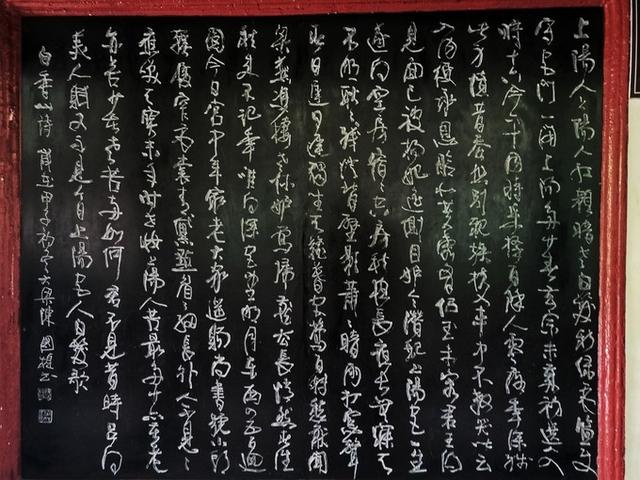 上陽人上陽人紅顏暗老白髮新綠衣監使
守宮門一閉上陽多少春玄宗末歲初選入
時十六今六十同時采擇百餘人零落年深殘
此身憶昔吞悲別親族扶入車中不教哭皆云
入內便承恩臉似芙蓉胸似玉未容君王得
見面已被楊妃遙側目妒令潛配上陽宮一生
遂向空房宿宿空房秋夜長夜長無寐天
不明耿耿殘燈背壁影蕭蕭暗雨打窗聲
春日遲日遲獨坐天難暮宮鶯百囀愁厭聞
梁燕雙棲老休妒鶯歸燕去長悄然春往
秋來不記年唯向深宮望明月東西四五百迴
圓今日宮中年最老大家遙賜尚書號小頭
鞋履窄衣裳青黛點眉眉細長外人不見見
應笑天寶末年時世妝上陽人苦最多少亦苦老
亦苦少苦老苦兩如何君不見昔時呂向
美人賦又不見今日上陽宮人白髮歌
白香山詩 歲在甲子初冬 陳國